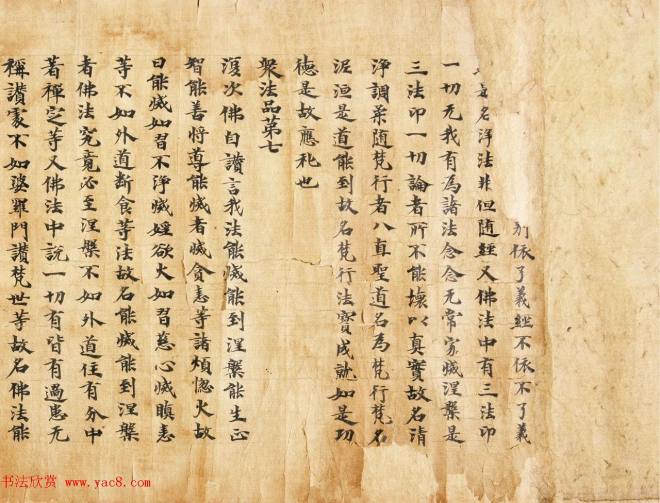 別依了義經不依不了義
名淨法非但随經又佛法中有三法印
一切无我有為諸法念念无常寂滅涅槃是
三法印一切論者所不能壞以真實故名清
淨調柔随梵行者八直聖道名為梵行梵名
泥洹是道能到故名梵行法寶成就如是功
德是故應礼也
衆法品第七
復次佛自讚言我法能滅能到涅槃能生正
智能善將導能滅者滅貪恚等諸煩惱火故
曰能滅如習不淨滅婬欲火如習慈心滅瞋恚
等不如外道断食等法故名能滅能到涅槃
者佛法究竟必至涅槃不如外道住有分中
著禪定等又佛法中說一切有皆有過患无
稱讚處不如婆羅門讚梵世等故名佛法能
书法欣赏 www.yac8.com